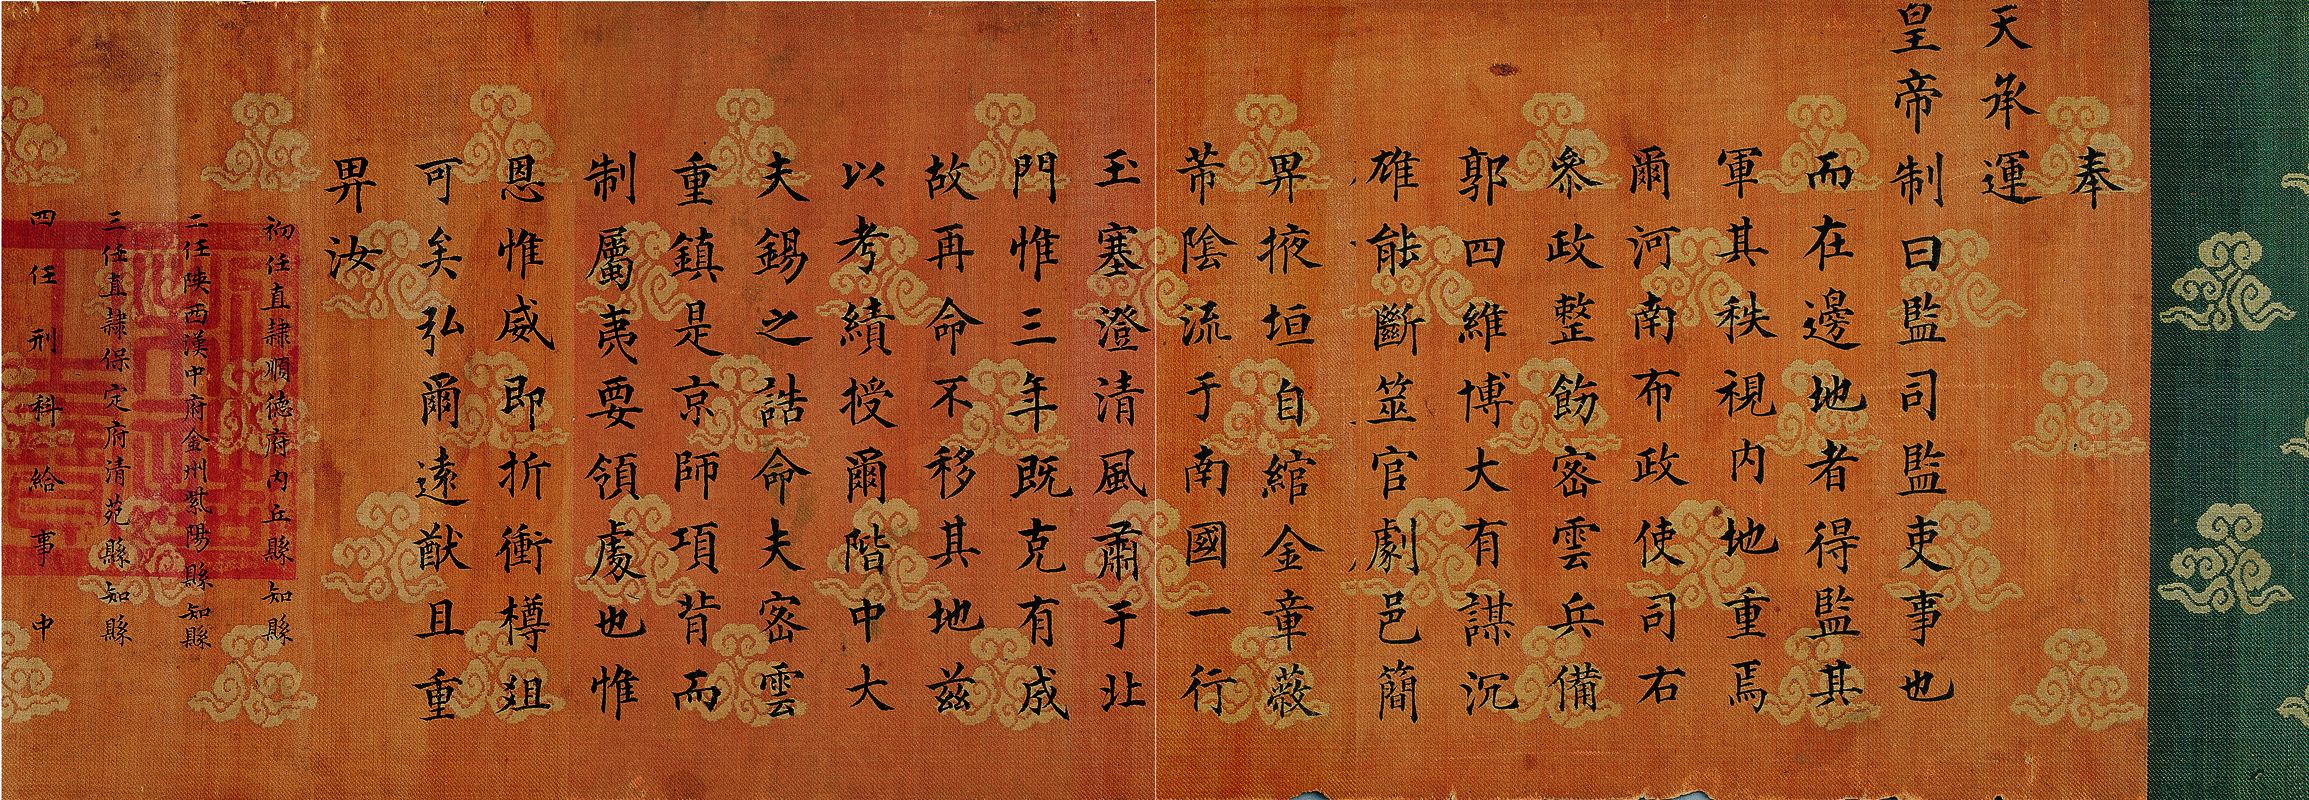 奉
天承運
皇帝制曰監司監吏事也
而在邊地者得監其
軍其秩視內地重焉
爾河南布政使司右
叅政整飭密雲兵備
郭四維博大有謀沉
雄能斷筮官劇邑簡
畀掖垣自綰金章蔽
芾陰流于南國一行
玉塞澄清風肅于北
門惟三年既克有成
故再命不移其地茲
以考績授爾階中大
夫錫之誥命夫密雲
重鎮是京師項背而
制屬夷要領處也惟
恩惟威即折衝樽俎
可矣弘爾遠猷且重
畀汝
初任直隸順德府內丘縣知縣
二任陝西漢中府金州紫陽縣知縣
三任直隸保定府清苑縣知縣
四任刑科給事中